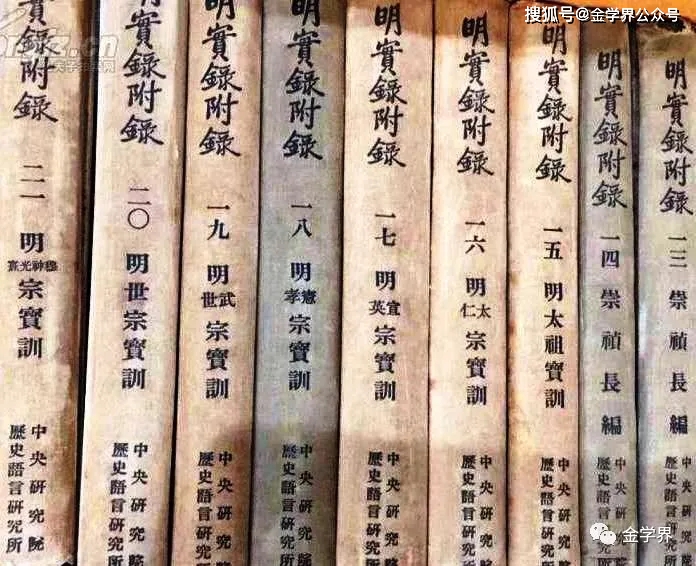 搜狐号@金学界公众号
明實錄附錄
一三
崇禎長編
中央研究院
歷史語言研究所
明實錄附錄
一四
崇禎長編
中央研究院
歷史語言研究所
明實錄附錄
一五
明太祖寶訓
中央研究院
歷史語言研究所
明實錄附錄
一六
明太仁宗寶訓
中央研究院
歷史語言研究所
明實錄附錄
一七
明宣英宗寶訓
中央研究院
歷史語言研究所
明實錄附錄
一八
明憲孝宗寶訓
中央研究院
歷史語言研究所
明實錄附錄
一九
明武世宗寶訓
中央研究院
歷史語言研究所
明實錄附錄
二〇
明世宗寶訓
中央研究院
歷史語言研究所
實錄附錄
二一
明穆神光熹宗寶訓
中央研究院
歷史語言研究所
金学界